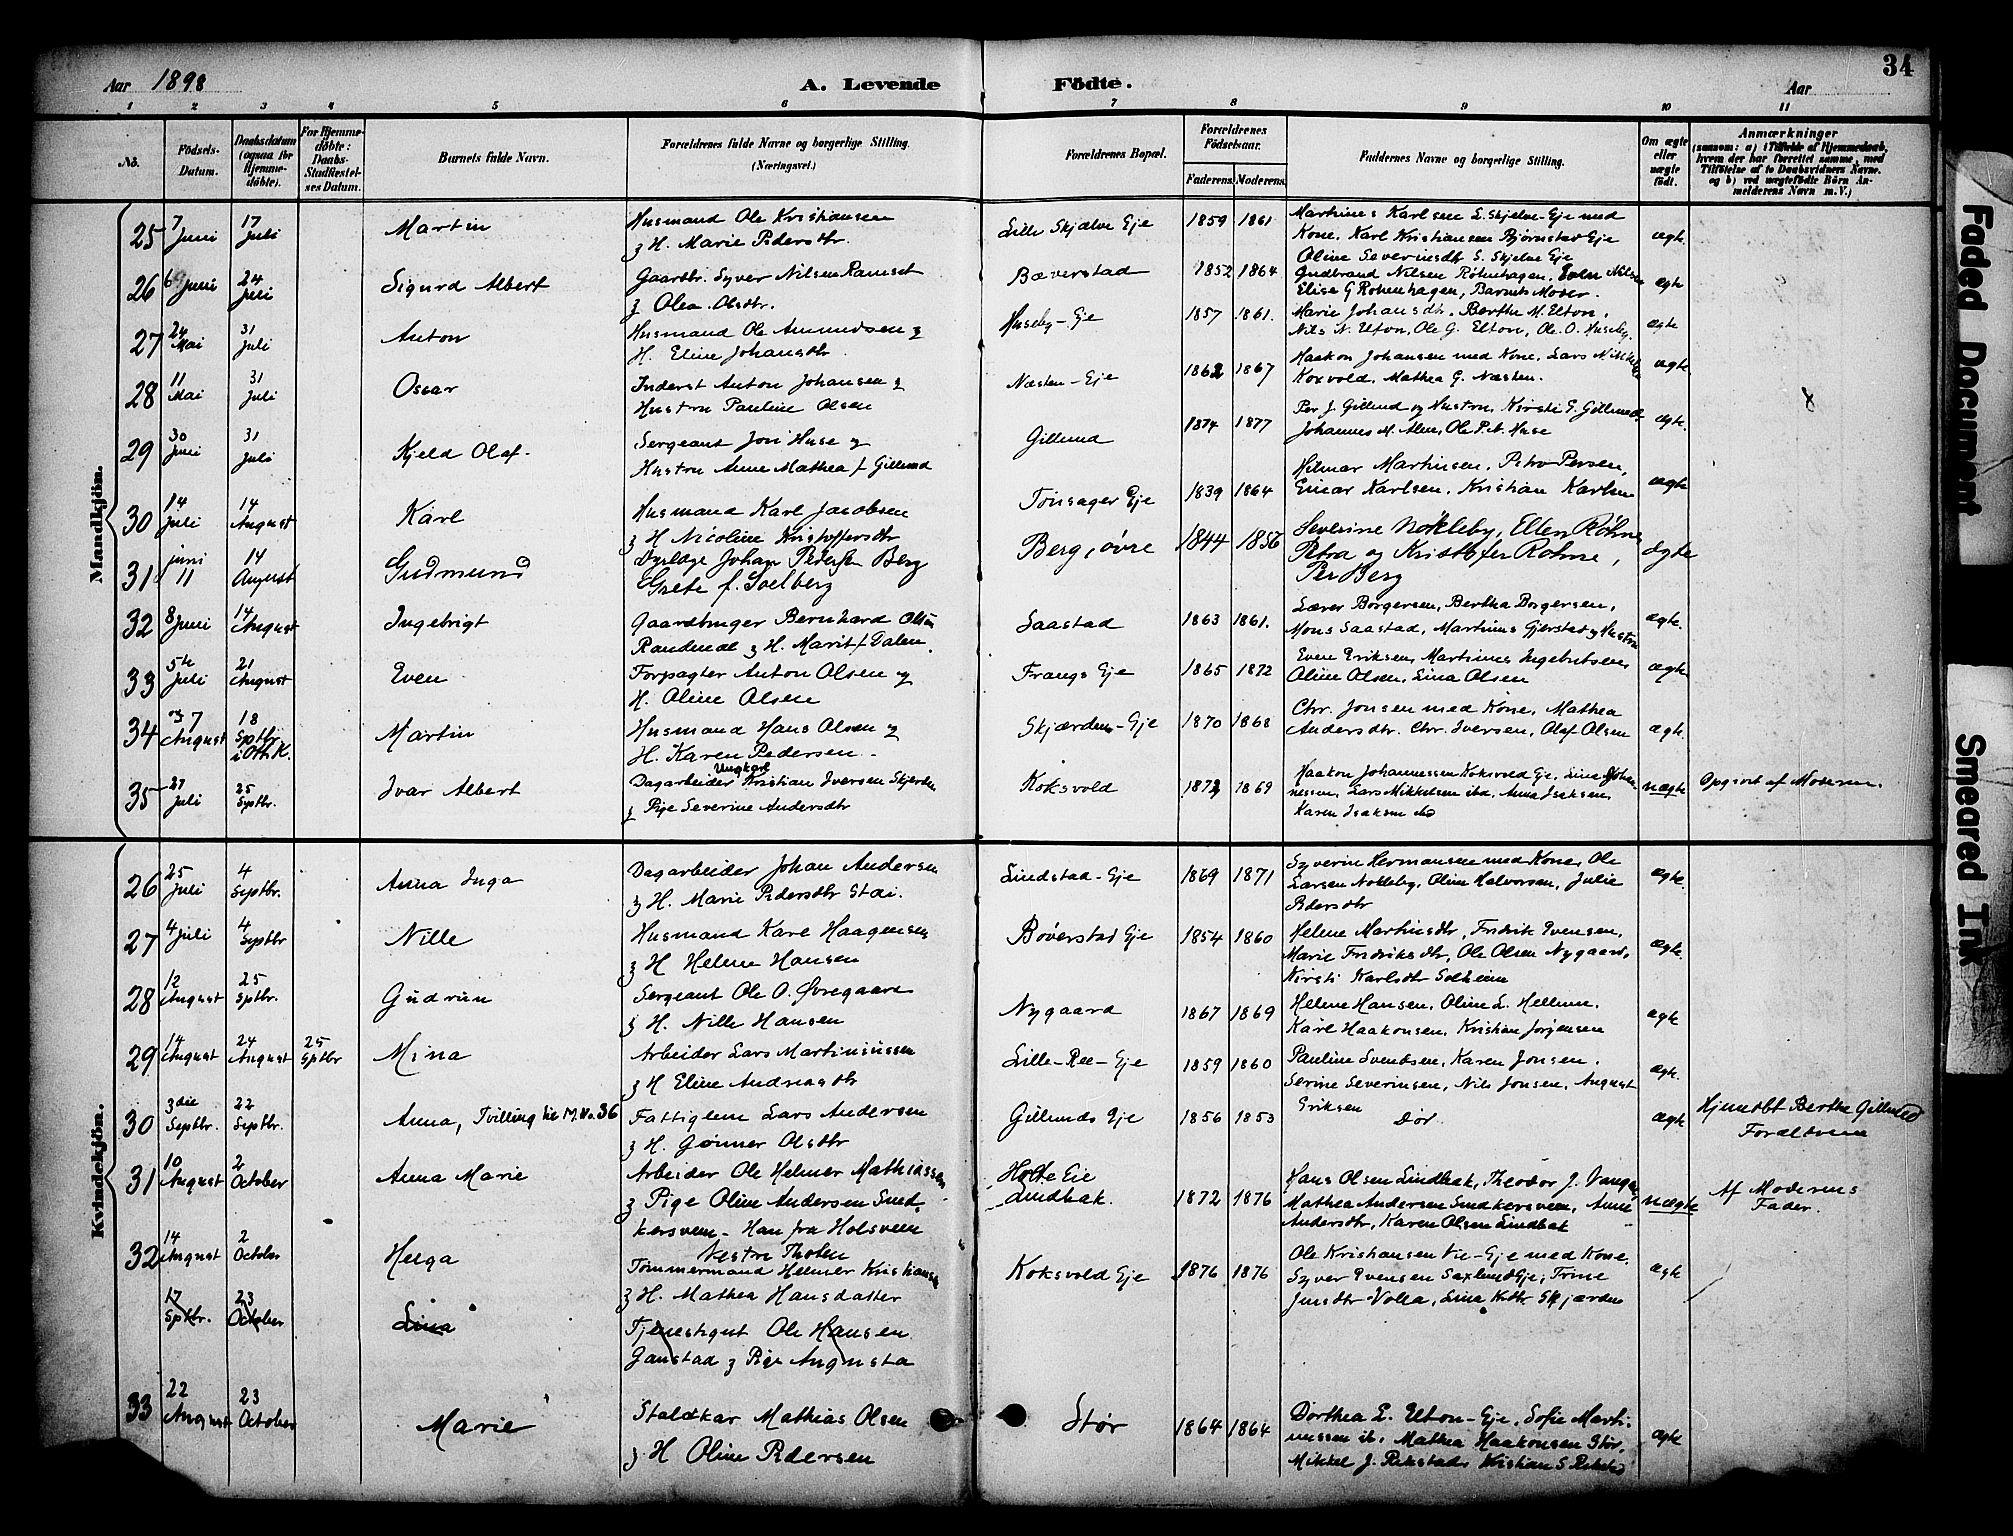 34
Aar 1898
A. Levende Födte.
Aar
1 2 3 4 5 6 7 8 9 10 11
No.
Födsels-Datum.
Daabsdatum (ogsaa for Hjemmedöbte).
For Hjemmedöbte: Daabs-Stadfæstelses Datum.
Barnets fulde Navn.
Forældrenes fulde Navne og borgerlige Stilling. (Næringsvei.)
Forældrenes Bopæl.
Forældrenes Födselsaar.
Faderens. Moderens.
Faddernes Navne og borgerlige Stilling.
Om ægte eller uægte födt.
Anmærkninger
(saasom: a) i Tilfælde af Hjemmedaab, hvem der har forrettet samme, med Tilföielse af to Daabsvidners Navne. og b) ved uægtefödte Börn Anmelderens Navn m. V.)
Mandkjön.
25 7 Juni 17 Juli Martin
Husmand Ole Kristiansen
& H. Marie Pedersdtr.
Lille Skjælve Eje 1859 1861
Martinus Karlsen L. Skjelve-Eje med
Kone, Karl Kristiansen Bjørnstad Eje
Oline Severinsdtr S. Skjelve Eje
ægte
26 6 Juni 24 Juli Sigurd Albert
Gaardbr. Syver Nilsen Ramset
& Olea Olsdtr.
Bæverstad 1852 1864
Gudbrand Nilsen Rohnhagen, Nilsen
Elise G Rohnhagen, Barnets Moder.
ægte
27 24 Mai 31 Juli Anton
Husmand Ole Amundsen &
H. Eline Johansdtr.
Huseby-Eje 1857 1861.
Marie Johansdtr, Berthe M. Elton,
Nils N. Elton, Ole G. Elton, Ole O. Huseby.
ægte
28 11 Mai 31 Juli Oscar
Inderst Anton Johansen &
Hustru Pauline Olsen
Næsten-Eje 1862 1867
Haakon Johansen med Kone, Lars Mikkelsen
Koxvold, Mathea G. Næsten.
ægte
29 30 Juni 31 Juli Kjeld Olaf.
Sergeant Jon Huse og
Hustru Anne Mathea f. Gillund
Gillund 1874 1877
Per J. Gillund og Hustru, Kirsti G. Gillund
Johannes M. Alm, Ole P. Huse
ægte.
30 14 Juli 14 August Karl
Husmand Karl Jacobsen
& H Nicoline Kristoffersdtr
Tønsager Eje 1839 1864
Hilmar Martinsen, Petra Persen,
Einar Karlsen, Kristian Karlsen
ægte
31 juni 11 14 August Gudmund
Dyrlæge Johan Pedersen Berg
Grete f. Soelberg
Berg, øvre 1844 1856
Severine Nökleby, Ellen Röhne
Petra og Kristofer Rohne,
Per Berg
ægte
32 8 Juni 14 August Ingebrigt
Gaardbruger Bernhard Olsen
Randmæl & H. Marit f. Dalen.
Saastad 1863 1861.
Lærer Borgersen, Bertha Borgersen,
Mons Saastad, Martinus Gjerstad og Hustru
ægte.
33 5te Juli 21 August Even
Forpagter Anton Olsen og
H. Oline Olsen
Frangs Eje 1865 1872
Even Eriksen, Martinus Ingebretsen
Oline Olsen, Lina Olsen
ægte
34 7 August 18 Sptbr. i Oth. K. Martin
Husmand Hans Olsen &
H. Karen Pedersen
Skjærden-Eje 1870 1868
Chr. Jonsen med Kone, Mathea
Andersdtr. Chr. Iversen, Olaf Olsen
ægte.
35 27 Juli 25 Sptbr. Ivar Albert
Ungkarl
Dagarbeider Kristian Iversen Skjerden
& Pige Severine Andersdtr
Koksvold 1872 1869
Haakon Johannessen Koksvold Eje, Lina Johan
nessen, Lars Mikkelsen ibd, Anna Isaksen,
Karen Isaksen ibd
uægte
Opgivet af Moderen.
Kvindekjön.
26 25 Juli 4 Septbr. Anna Inga
Dagarbeider Johan Andersen
& H. Marie Pedersdtr Stai.
Lindstad-Eje 1869 1871
Syverin Hermansen med Kone, Ole
Larsen Nökleby, Oline Halvorsen, Julie
Pedersdtr
ægte.
27 4 Juli 4 Septbr Nille
Husmand Kare Haagensen
& H Helene Hansen
Bøverstad Eje 1854 1860
Helene Martinsdtr, Fredrik Evensen,
Marie Fredriksdtr, Ole Olsen Nygaard,
Kirsti Karlsdtr Solheim
ægte.
28 12 August 25 Sptbr. Gudrun
Sergeant Ole O. Øvregaard
& H. Nille Hansen
Nygaard 1867 1869
Helene Hansen, Oline L. Hellum,
Karl Haakonsen, Kristian Jorgensen
ægte
29 14 August 24 August 25 Sptbr Mina
Arbeider Lars Martiniussen
& H Eline Andreasdtr
Lille-Ree-Eje 1859 1860
Pauline Svendsen, Karen Jonsen,
Serine Severinsen, Nils Jonsen, August
Eriksen
ægte.
30 3die Septbr. 22 Septbr. Anna, Tvilling til M. No. 36
Fattiglem Lars Andersen
& H. Gønner Olsdtr
Gillunds Eje 1856 1853
Dör.
ægte
Hjemdöbt Berthe Gillund
Forældrene
31 10 August 2 October Anna Marie
Arbeider Ole Helmer Mathiassen
& Pige Oline Andersen Smed
kersveen - Han fra Holsveen
Vestre Thoten
Holte Eie
Lindbak. 1872 1876
Hans Olsen Lindbak, Theodor J. Vangen
Mathea Andersen Smedkersveen, Anne
Andersdtr, Karen Olsen Lindbak
uægte
Af Moderens
Fader.
32 14 August 2 October Helga
Tømmermand Helmer Kristiansen
& H. Mathea Hansdatter
Koksvold Eje 1876 1876
Ole Kristiansen Vie-Eje med Kone,
Syver Evensen Saxlund Eje, Trine
Jensdtr Volla, Lina Skjærden
ægte
17 Sptbr. 23 October Lina
Tjenestegut Ole Hansen
Gaustad & Pige Augusta
33 22 August 23 October Marie
Staldkar Mathias Olsen
& H Oline Pedersen
Stör 1864 1864
Dorthea E. Elton-Eje, Sofie Marti-
nussen ib., Mathea Haakonsen Stör,
Mikkel J. Rekstad, Kristian S Rekstad
ægte
Faded Document
Smeared Ink